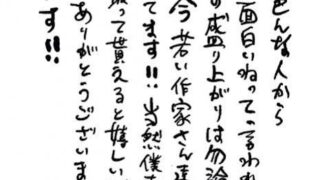 色んな人から
面白いねって言われ
の盛り上がりは勿論
今若い作家さん達
てます!!当然僕も
取って貰えると嬉しい
ありがとうございま
す!!